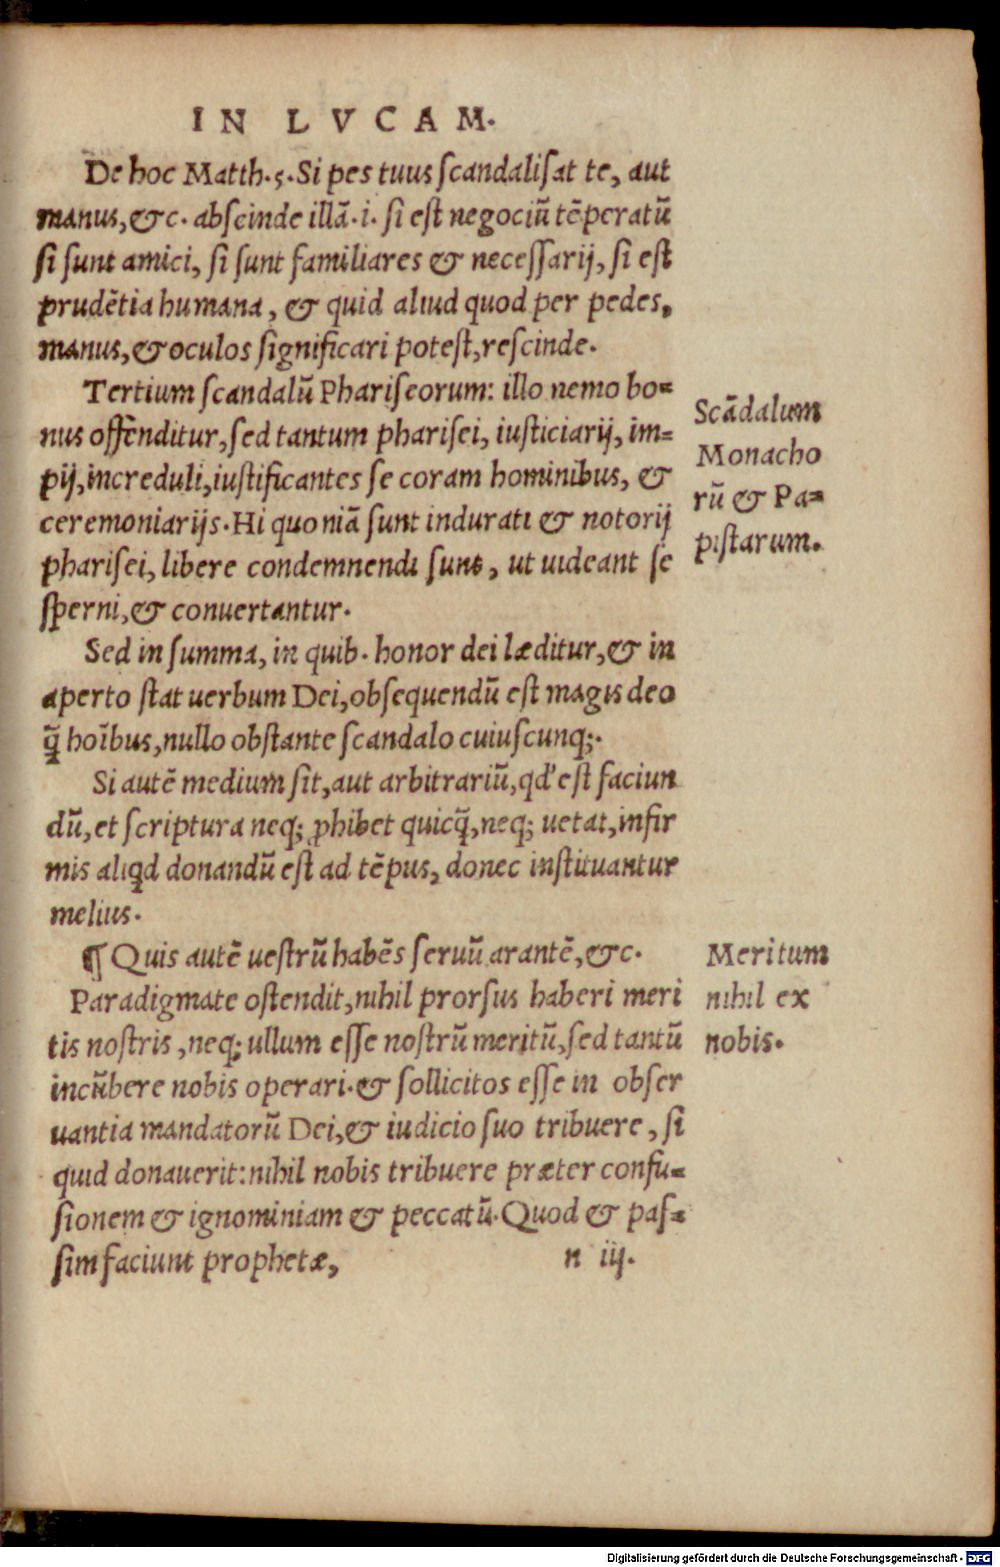 IN LVCAM.
De hoc Matth.5. Si pes tuus ſcandaliſat te, aut
manus, &c. abſcinde illā.i. ſi eſt negociū tēperatū
ſi ſunt amici, ſi ſunt familiares & neceſſarij, ſi eſt
prudētia humana, & quid aliud quod per pedes,
manus, & oculos ſignificari poteſt, reſcinde.
Tertium ſcandalū Phariſeorum: illo nemo bo=
nus offenditur, ſed tantum phariſei, iuſticiarij, im=
pij, increduli, iuſtificantes ſe coram hominibus, &
ceremoniarijs. Hi quoniā ſunt indurati & notorij
phariſei, libere condemnendi ſunt, ut uideant ſe
ſperni, & conuertantur.
Scādalum
Monacho
rū & Pa=
piſtarum.
Sed in ſumma, in quib. honor dei læditur, & in
aperto ſtat uerbum Dei, obſequendū eſt magis deo
q̄ʒ hoībus, nullo obſtante ſcandalo cuiuſcunq;.
Si autē medium ſit, aut arbitrariū, qd' eſt faciun
dū, et ſcriptura neq; ꝓhibet quicq̄ʒ, neq; uetat, infir
mis aliqd donandū eſt ad tēpus, donec inſtituantur
melius.
¶ Quis autē ueſtrū habēs ſeruū arantē, &c.
Paradigmate oſtendit, nihil prorſus haberi meri
tis noſtris, neq; ullum eſſe noſtrū meritū, ſed tantū
incūbere nobis operari. & ſollicitos eſſe in obſer
uantia mandatorū Dei, & iudicio ſuo tribuere, ſi
quid donauerit: nihil nobis tribuere præter confu=
ſionem & ignominiam & peccatū. Quod & paſ=
ſim faciunt prophetæ,
Meritum
nihil ex
nobis.
n iij.
Digitalisierung gefördert durch die Deutsche Forschungsgemeinschaft - DFG